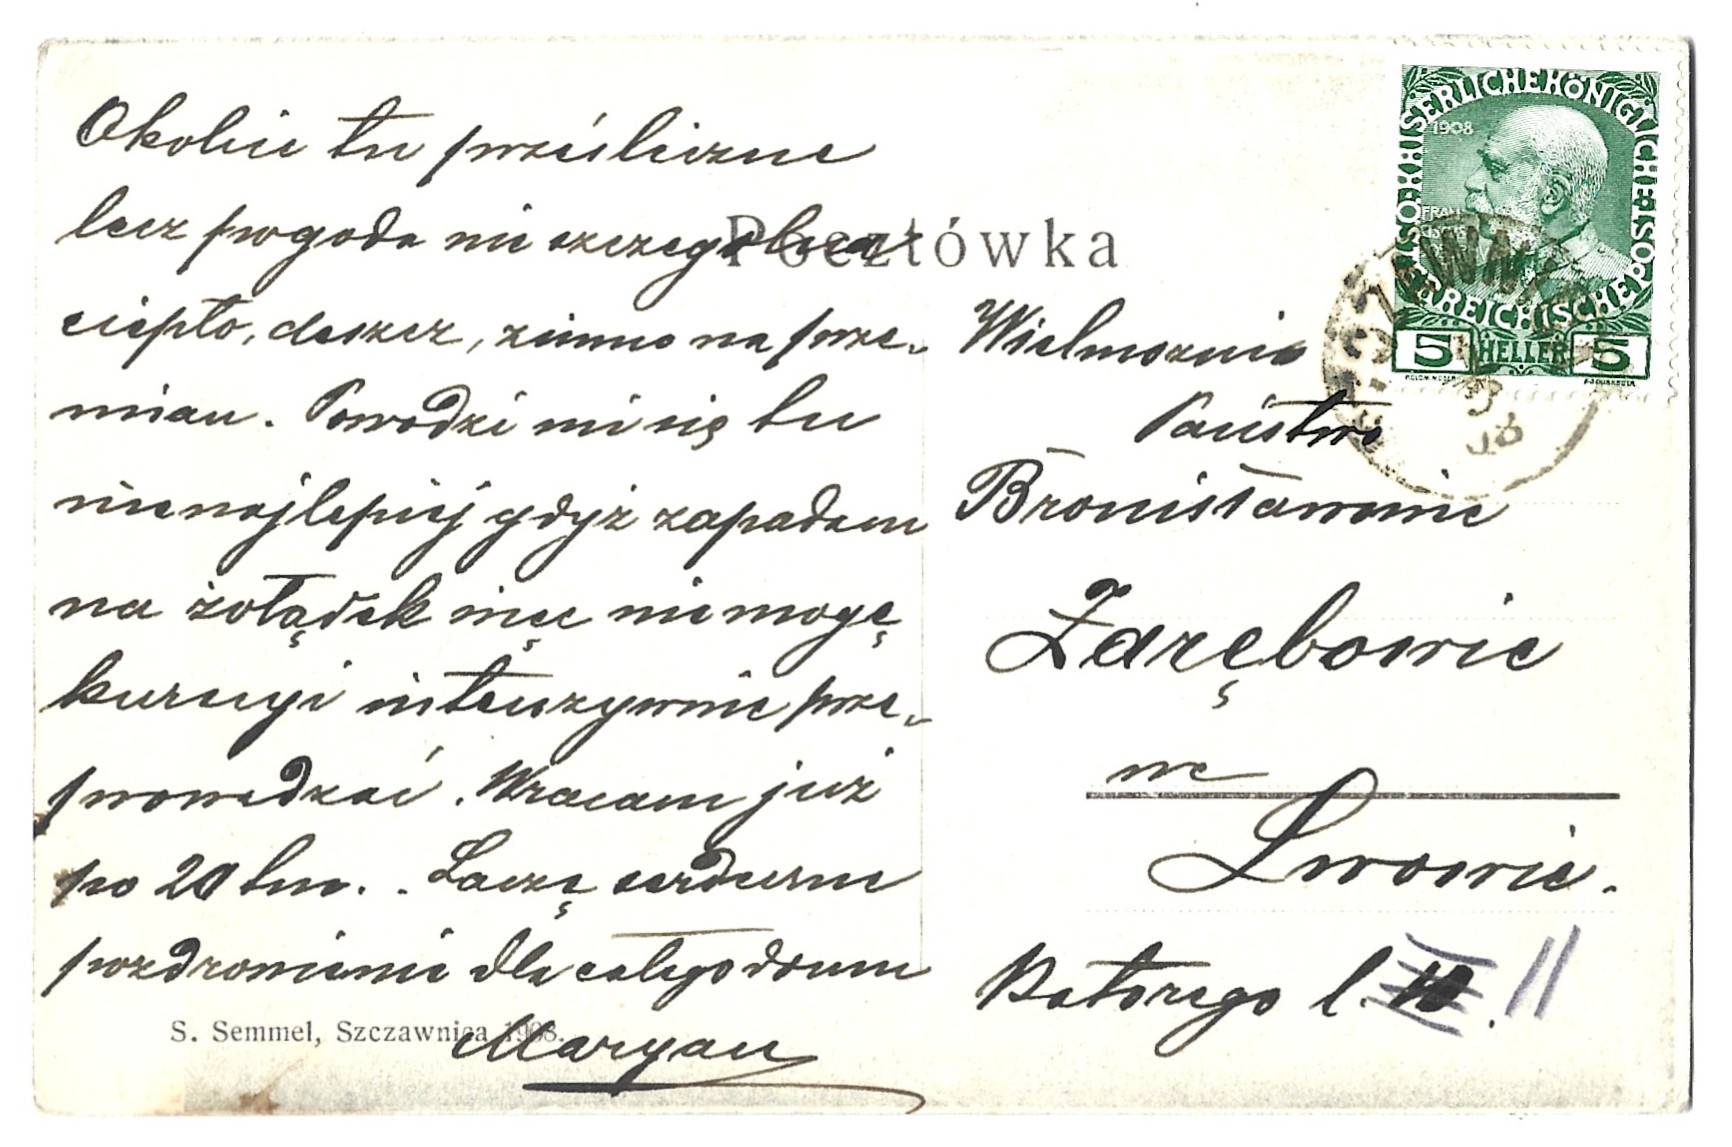 Okolice tu prześliczne
lecz pogoda nieszczególna
ciepło, deszcz, zimno na prze-
mian. Powodzi mi się tu
nienajlepiej gdyż zapadam
na żołądek więc nie mogę
kuracyi intenzywnie prze-
prowadzać. Wracam już
po 20 bm. Łączę serdeczne
pozdrowienie dla całego domu
Maryan
S. Semmel, Szczawnica 1908.
Pocztówka
Wielmożni
Państwo
Bronisławowie
Zarębowie
we
Lwowie.
Batorego l. 11
KAISERLICHE KÖNIGLICHE ÖSTERREICHISCHE POST
1908
5 HELLER 5